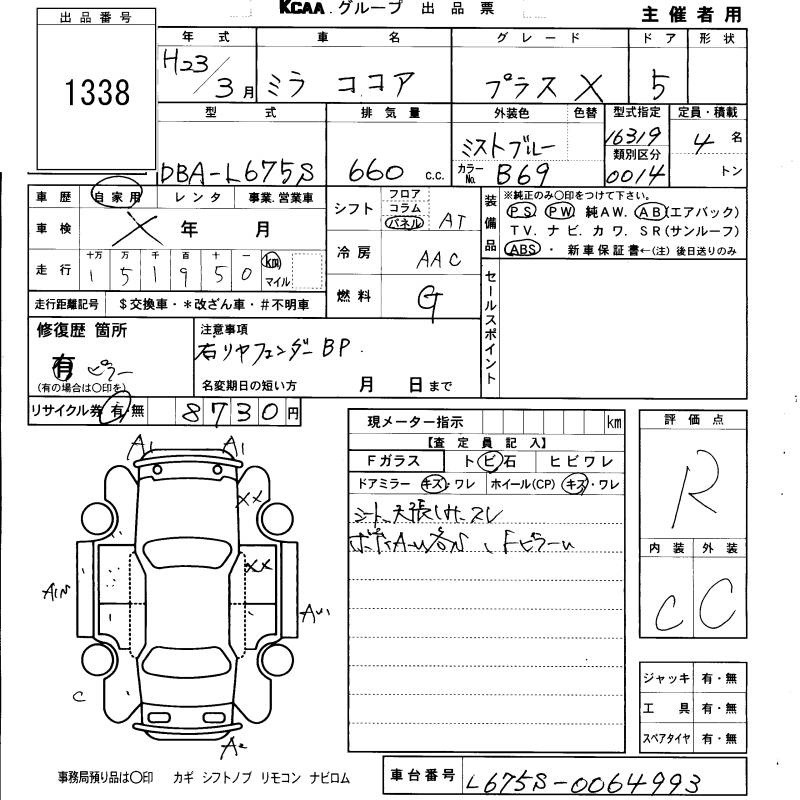 KCAA.グループ 出品票
主催者用
出品番号
1338
年式 車名 グレード ドア 形状
H23/3月 ミラ ココア プラスX 5
型式 排気量 外装色 色替 型式指定 定員・積載
DBA-L675S 660 c.c. ミストブルー 16319 4名
カラーNo. B69 類別区分 0014 トン
車歴 自家用 レンタ 事業.営業車
車検 年 月
走行 十万 万 千 百 十 一
1 5 1 9 5 0 km マイル
走行距離記号 $交換車・*改ざん車・#不明車
シフト フロア コラム パネル AT
冷房 AAC
燃料 G
装備品 ※純正のみ〇印をつけて下さい。
PS PW 純AW. AB(エアバック)
TV. ナビ. カワ. SR(サンルーフ)
ABS・新車保証書←(注)後日送りのみ
セールスポイント
修復歴 箇所
有 ピラー
(有の場合は〇印を)
注意事項
右リヤフェンダーBP.
名変期日の短い方 月 日まで
リサイクル券 有・無 8730円
現メーター指示 km
【査定員記入】
Fガラス トビ石 ヒビワレ
ドアミラー キズ・ワレ ホイール(CP) キズ・ワレ
シート、天張しみ.スレ
評価点
R
内装 外装
C C
A1 A1
XX
XX
C
A2
ジャッキ 有・無
工具 有・無
スペアタイヤ 有・無
事務局預り品は〇印 カギ シフトノブ リモコン ナビロム
車台番号 L675S-0064993